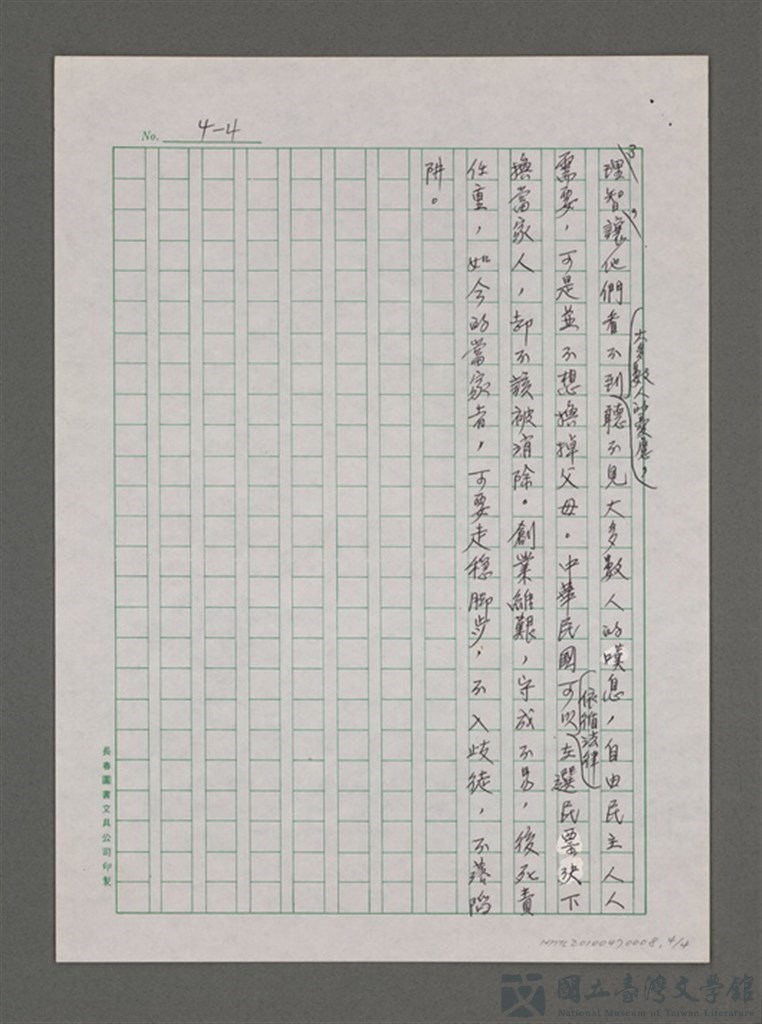 No. 4-4
理智,讓他們看不到大多數人的憂慮,聽不見大多數人的嘆息,自由民主人人
需要,可是並不想換掉父母。中華民國可以依循法律在選民票決下
換當家人,却不該被消除。創業維艱,守成不易,後死責
任重,如今的當家者,可要走穩腳步,不入歧徒,不落陷
阱。
長春圖書文具公司印製
NMTL20100470008, 4/4
國立臺灣文學館
National Museum of Taiwan Literature